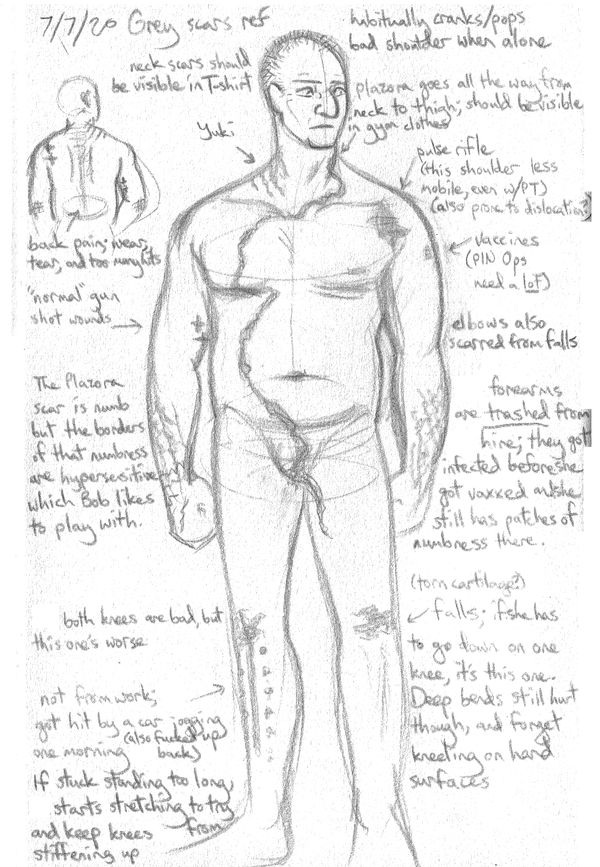 7/7/20 Grey scars ref
habitually cranks/pops
bad shoulder when alone
neck scars should
be visible in T-shirt
plazora goes all the way from
neck to thigh; should be visible
in gym clothes
Yuki
pulse rifle
(this shoulder less
mobile, even w/PT)
(also prone to dislocation?)
back pain; wear,
tear, and too many hits
vaccines
(PIN Ops
need a lot)
"normal" gun
shot wounds
elbows also
scarred from falls
The Plazora
scar is numb
but the borders
of that numbness
are hypersensitive
which Bob likes
to play with.
forearms
are trashed from
hine; they got
infected before she
got vaxxed and she
still has patches of
numbness there.
both knees are bad, but
this one's worse
(torn cartilage?)
falls; if she has
to go down on one
knee, it's this one.
Deep bends still hurt
though, and forget
kneeling on hard
surfaces
not from work;
got hit by a car jogging
one morning
(also fucked up
back)
If stuck standing too long,
starts stretching to try
and keep knees from
stiffening up